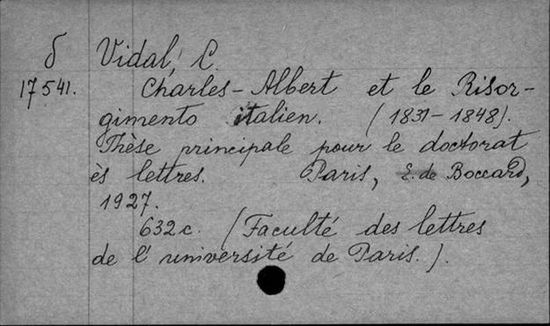 δ Vidal, C.
17541. Charles-Albert et le Risor-
gimento italien. (1831-1848).
Thèse principale pour le doctorat
ès lettres. Paris, E. de Boccard,
1927.
632 c. (Faculté des lettres
de l'université de Paris.).